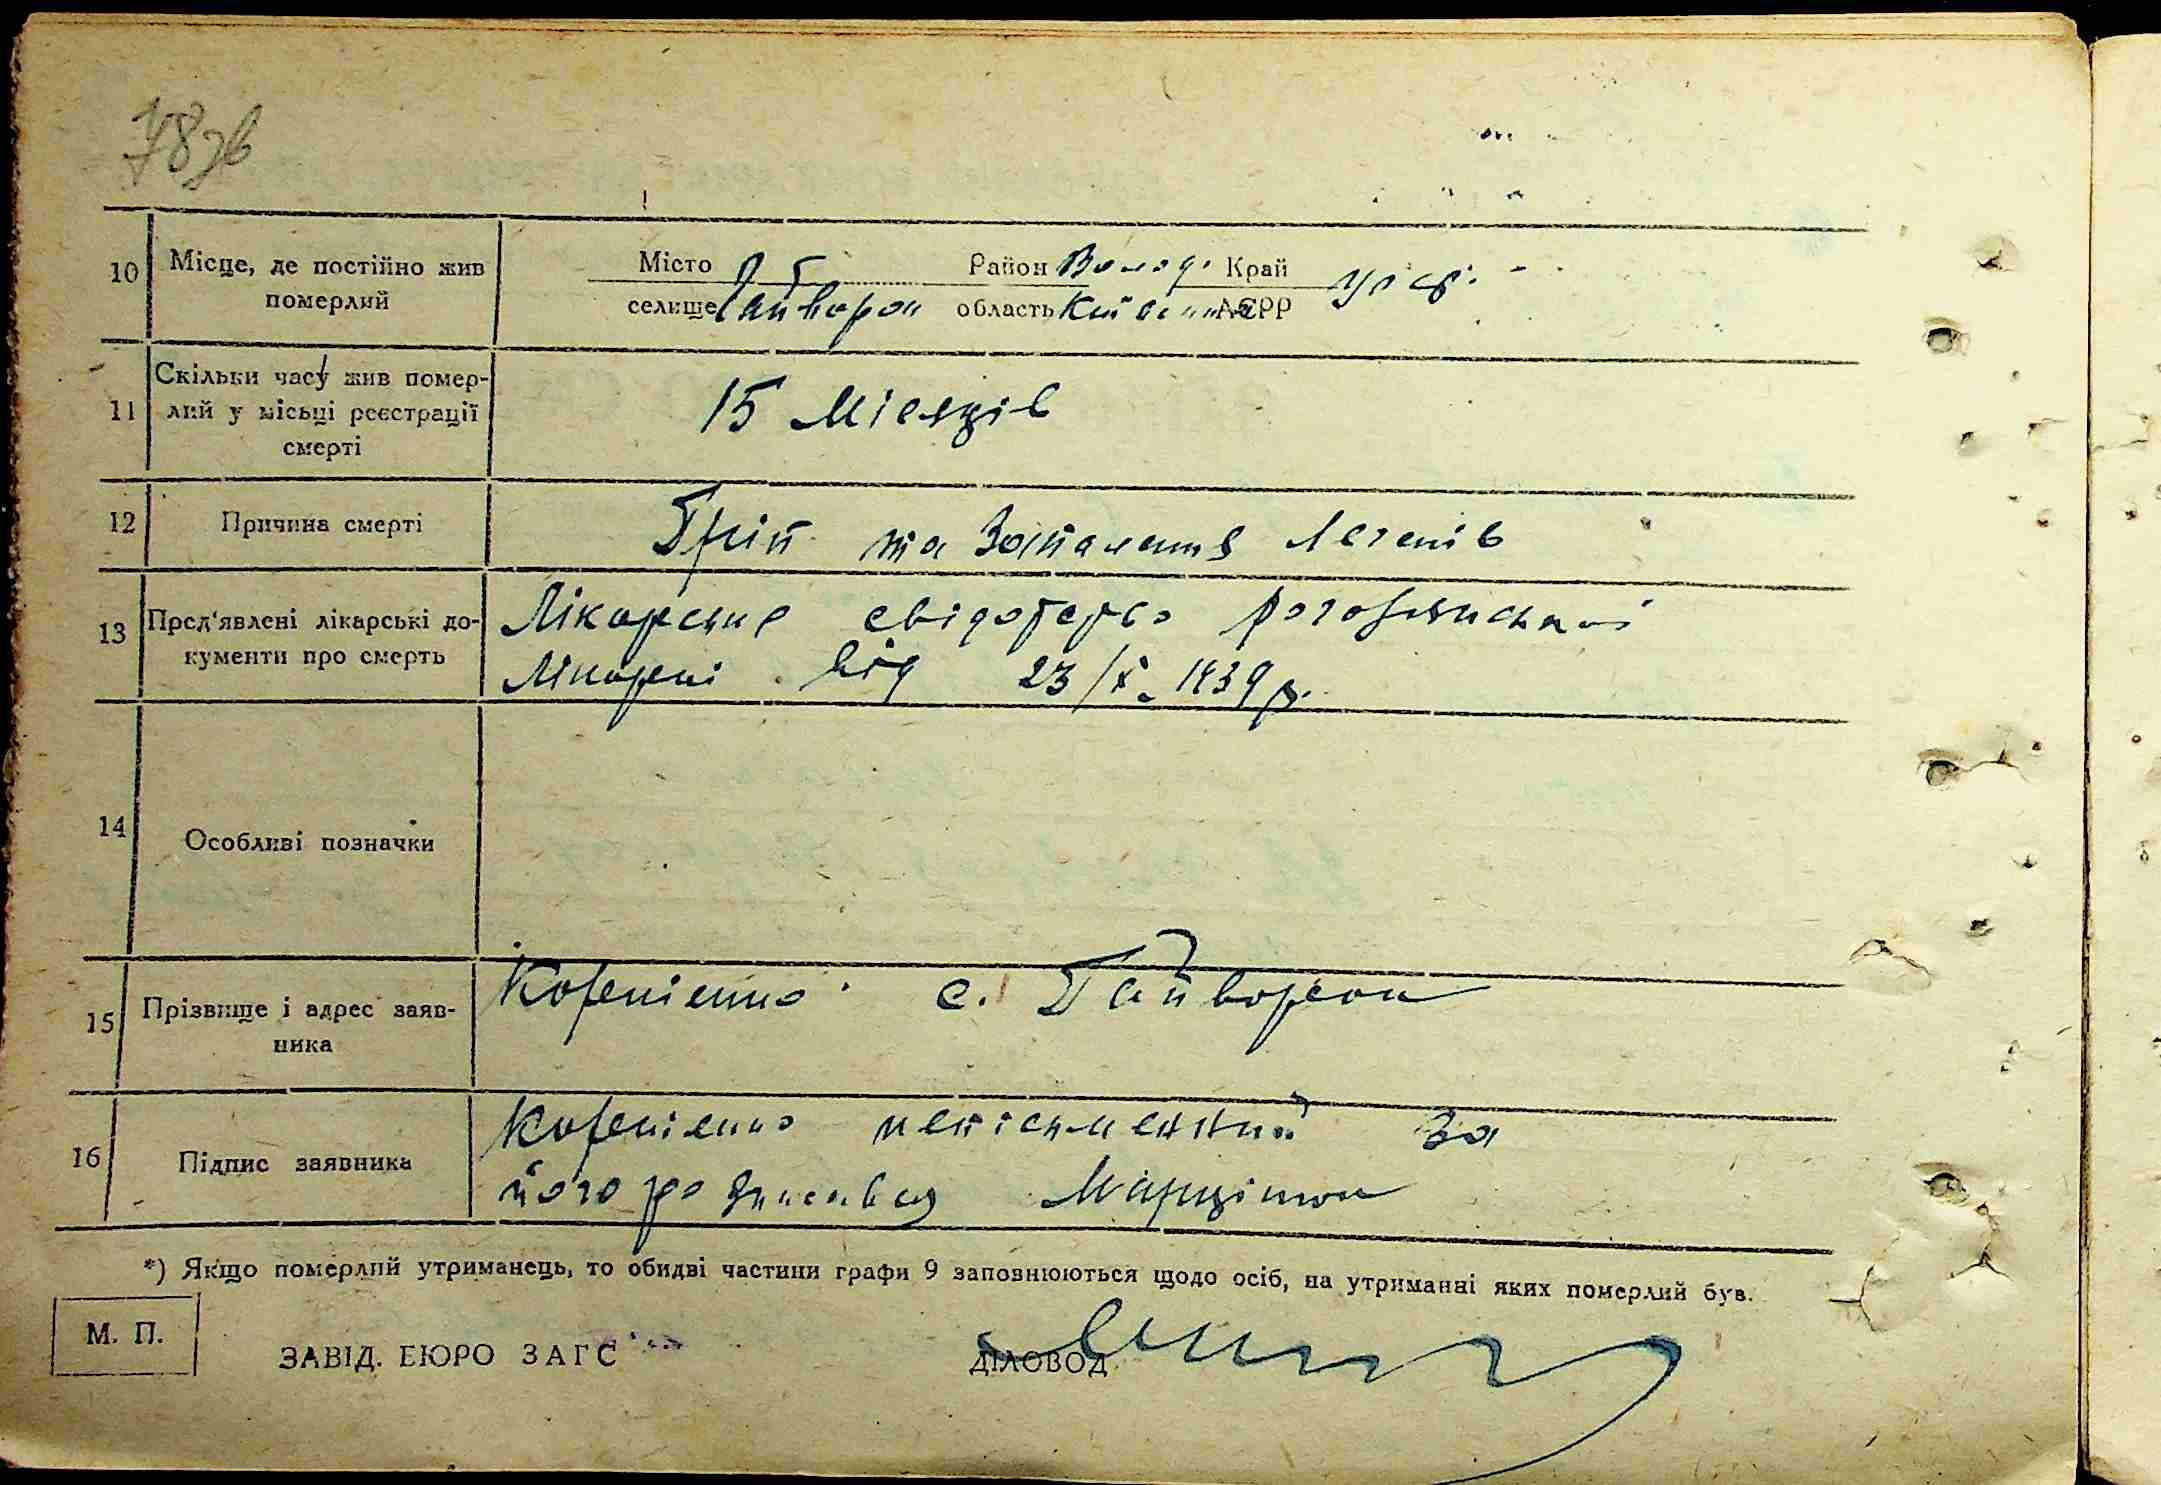 78 зв
10 Місце, де постійно жив Місто Район Волод. Край
померлий селище Гайворон область Київська АСРР УРСР
Скільки часу жив помер-
11 лий у місьці реєстрації 15 Місяців
смерті
12 Причина смерті Гріп та Запалення Легенів
13 Пред'явлені лікарські до- Лікарське свідотство
кументи про смерть Лікарні від 23/X. 1939 р.
14 Особливі позначки
15 Прізвище і адрес заяв- с. Гайворон
ника
16 Підпис заявника неписьменний За
його росписався
*) Якщо померлий утриманець, то обидві частини графи 9 заповнюються щодо осіб, на утриманні яких померлий був.
М. П.
ЗАВІД. БЮРО ЗАГС ДІЛОВОД